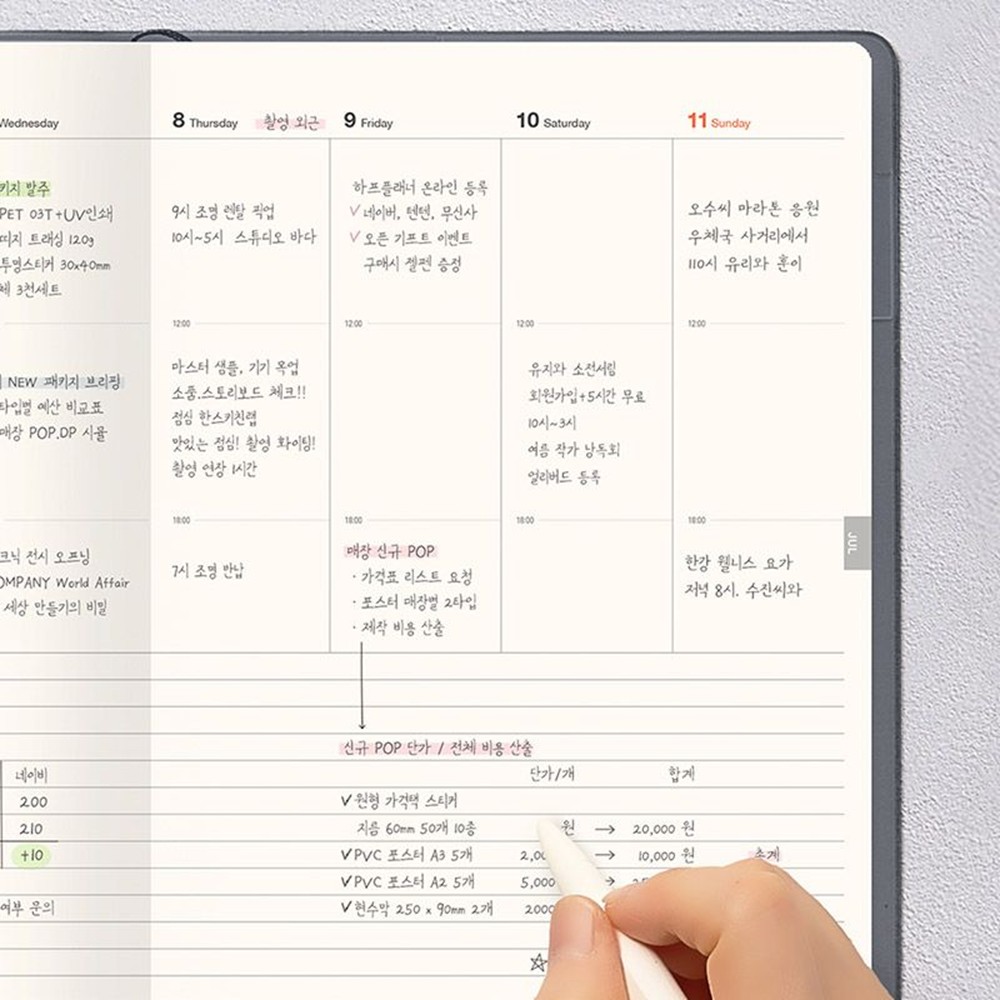 Wednesday
키지 발주
PET 03T+UV인쇄
띠지 트래싱 120g
투명스티커 30x40mm
체 3천세트
NEW 패키지 브리핑
타입별 예산 비교표
매장 POP.DP 시뮬
크닉 전시 오프닝
OMPANY World Affair
세상 만들기의 비밀
네이비
200
210
+10
여부 문의
8 Thursday 촬영 외근
9시 조명 렌탈 픽업
10시~5시 스튜디오 바다
12:00
마스터 샘플, 기기 목업
소품.스토리보드 체크!!
점심 한스키친랩
맛있는 점심! 촬영 화이팅!
촬영 연장 1시간
18:00
7시 조명 반납
9 Friday
하프플래너 온라인 등록
✓네이버, 텐텐, 무신사
✓오픈 기프트 이벤트
구매시 젤펜 증정
12:00
18:00
매장 신규 POP
· 가격표 리스트 요청
· 포스터 매장별 2타입
· 제작 비용 산출
10 Saturday
12:00
유지와 소전서림
회원가입+5시간 무료
10시~3시
여름 작가 낭독회
얼리버드 등록
18:00
11 Sunday
오수씨 마라톤 응원
우체국 사거리에서
110시 유리와 훈이
12:00
18:00
한강 웰니스 요가
저녁 8시. 수진씨와
JUL
신규 POP 단가 / 전체 비용 산출
단가/개 합계
✓원형 가격택 스티커
지름 60mm 50개 10종 원 → 20,000 원
✓PVC 포스터 A3 5개 2,00 → 10,000 원 총계
✓PVC 포스터 A2 5개 5,000 →
✓현수막 250 x 90mm 2개 2000
☆